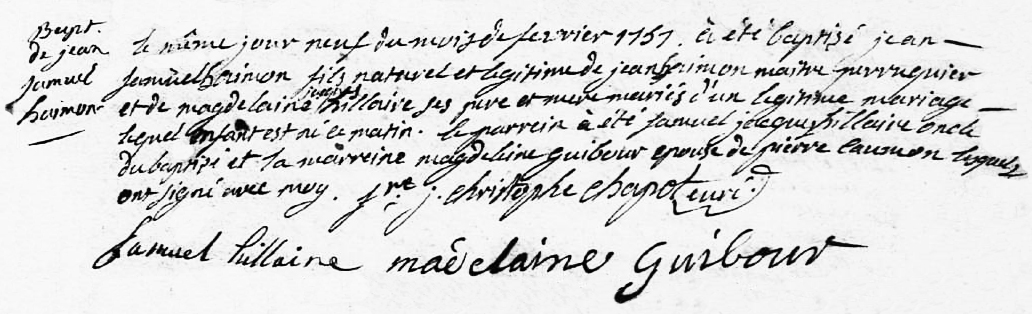 Bapt.
de jean
samuel
hainion
le même jour neuf du mois de fevrier 1757. à été baptisé jean
samuel hainion fils naturel et legitime de jean hainion maitre perruquier
et de magdelaine hillaire ses pere et mere mariés d'un legitime mariage
lequel enfant est né ce matin. le parrein à été samuel jacques hillaire oncle
du baptisé et la marreine magdelaine guibour epouse de pierre lesquels
ont signé avec moy. j. christophe chapot curé
samuel hillaine madelaine Guibour